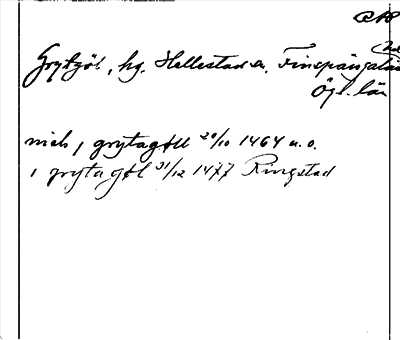 Grytgöl, hg. Hellestad sn, Finspångaläns
Ögl. län
nich j grytagøll 29/10 1464 u.o.
i gryta gøl 31/12 1477 Ringstad